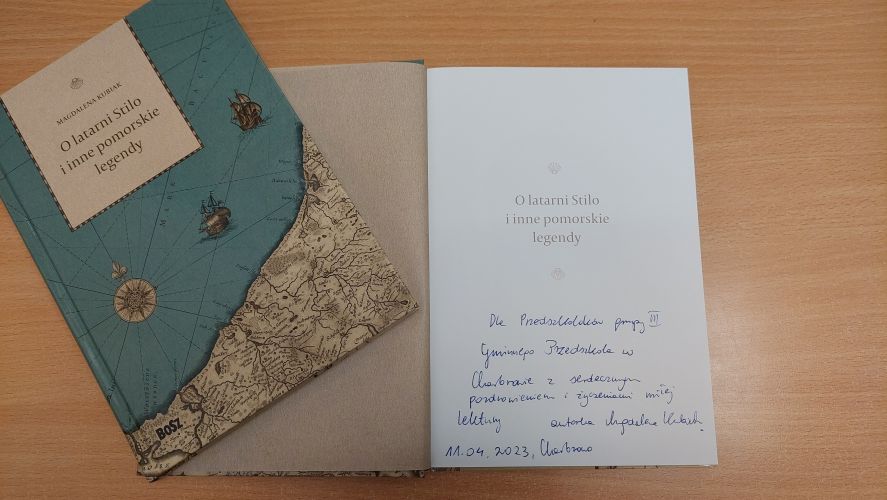 MAGDALENA KUBIAK
O latarni Stilo
i inne pomorskie
legendy
MARE
BOSZ
O latarni Stilo
i inne pomorskie
legendy
Dla Przedszkolaków grupy III
Gminnego Przedszkola w
Charbrowie z serdecznym
pozdrowieniem i życzeniami miłej
lektury autorka Magdalena Kubiak
11.04.2023, Charbrowo